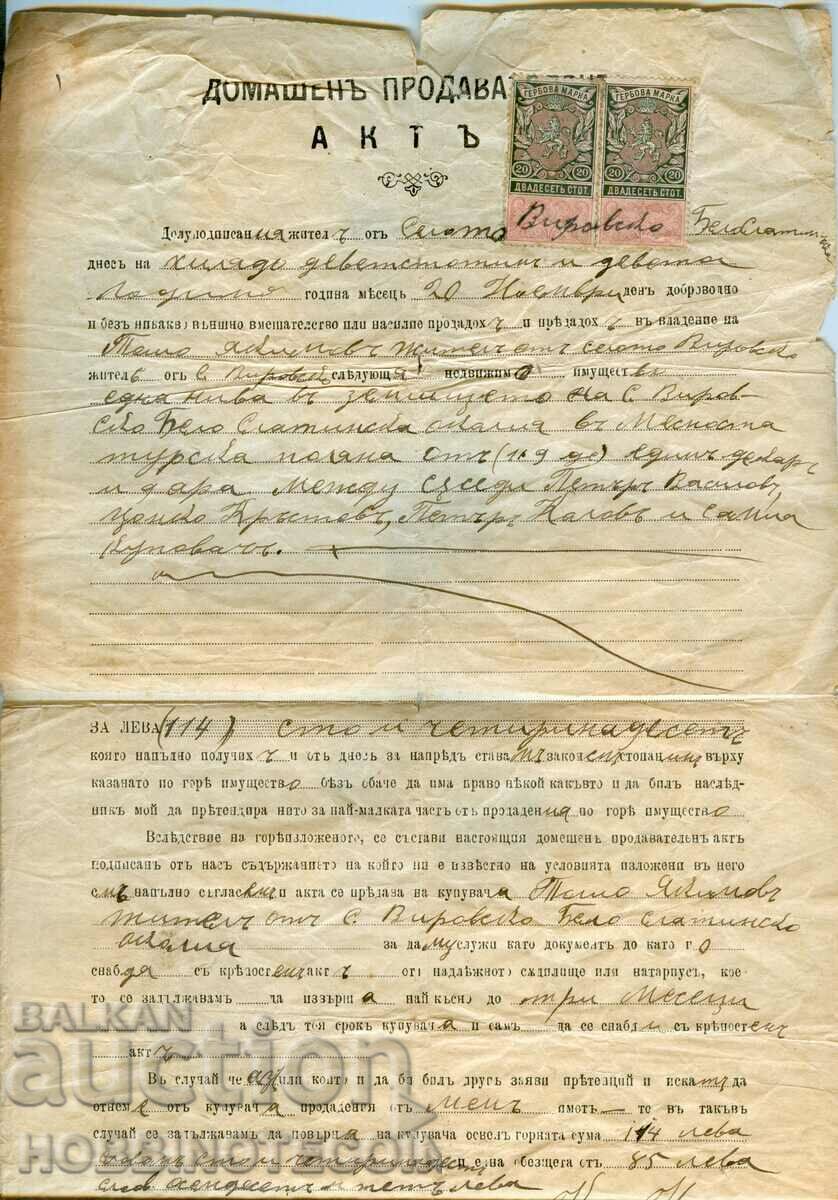 ДОМАШЕНЪ ПРОДАВА
АКТЪ
ГЕРБОВА МАРКА ГЕРБОВА МАРКА
20 20 20 20
ДВАДЕСЕТЬ СТОТ. ДВАДЕСЕТЬ СТОТ.
Долуподписания жителъ отъ Селото Вировско
днесь на хилядо деветстотинъ и девета
година месецъ 20 Ноемврий день доброволно
и безъ никакво външно вмешателство или насилие продадохъ и предадохъ въ владение на
Тошо Якимовъ жителъ отъ селото Вировско
жител отъ с. Вировско следующия недвижимо имущество
една нива въ землището на с. Виров-
ско Бело Слатинска околия въ Месноста
турска поляна отъ (1.9 де) единъ декаръ
и 9 дара между съседи Петъръ Василовъ,
Цонко Кръстовъ, Петъръ и
Куповачъ.
ЗА ЛЕВА (114) сто и четиринадесетъ
която напълно получихъ и отъ днесь за напредъ става законенъ стопанинъ върху
казанато по горе имущество безъ обаче да има право некой какъвто и да билъ наслед-
никъ мой да претендира нито за най-малката часть отъ продадения по горе имущество
Вследствие на горе изложеного, се състави настоящия домашенъ продавателенъ актъ
подписанъ отъ насъ съдържанието на който ни е известно на условията изложени въ него
смъ напълно съгласенъ и акта се предава на купувача Тошо Якимовъ
жителъ отъ с. Вировско Бело Слатинско
околия за да му служи като документъ до като го
снабдя съ крепостенъ актъ отъ надлежното съдилище или натариусъ, кое-
то се задължавамъ да извърша най късно до три месеци
а следъ тоя срокъ купувача и самъ да се снабди съ крепостенъ
актъ
Въ случай че азъ или който и да би билъ другъ заяви претенций и искатъ да
отнеме отъ купувача продадения отъ менъ имотъ — то въ такъвъ
случай се задължавамъ да повърна на купувача освенъ горната сума 114 лева
сто и четиринадесетъ и една безщета отъ 85 лева
осемдесетъ и петь лева
BALKAN
auction